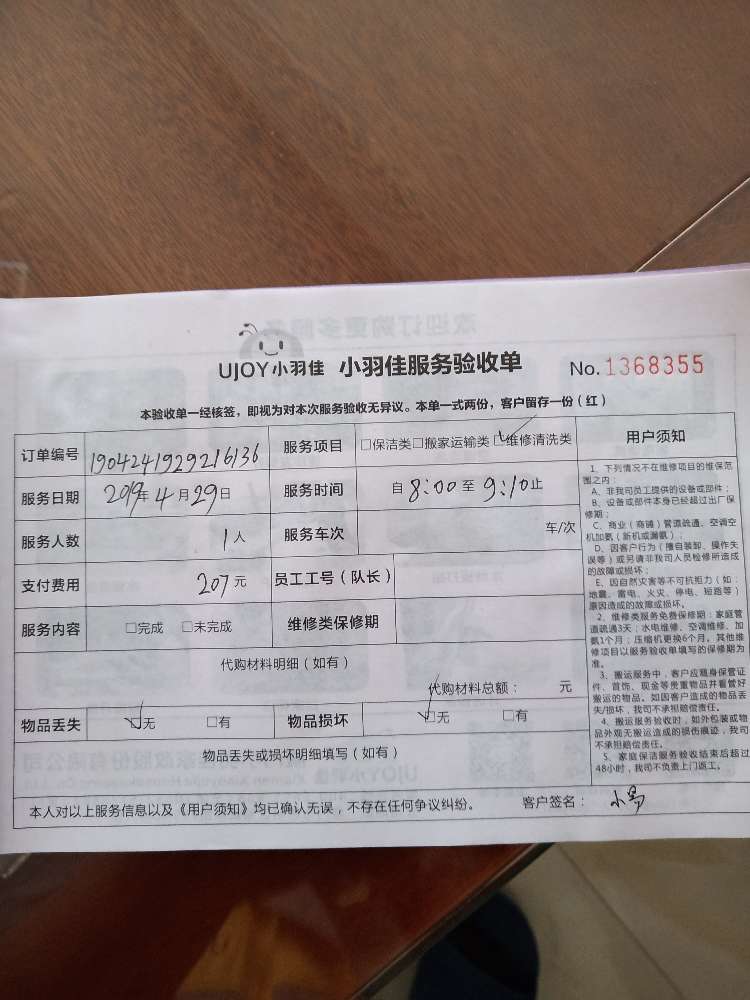 UJOY小羽佳 小羽佳服务验收单 No.1368355
本验收单一经核签，即视为对本次服务验收无异议。本单一式两份，客户留存一份（红）
订单编号 1904241929216136 服务项目 □保洁类□搬家运输类☑维修清洗类
服务日期 2019年4月29日 服务时间 自8:00至9:10止
服务人数 1人 服务车次 车/次
支付费用 207元 员工工号（队长）
服务内容 □完成 □未完成 维修类保修期
代购材料明细（如有）
代购材料总额： 元
物品丢失 ☑无 □有 物品损坏 ☑无 □有
物品丢失或损坏明细填写（如有）
本人对以上服务信息以及《用户须知》均已确认无误，不存在任何争议纠纷。 客户签名：
用户须知
1、下列情况不在维修项目的维保范
围之内：
A、非我司员工提供的设备或部件；
B、设备或部件本身已经超过出厂保
修期；
C、商业（商铺）管道疏通、空调空
机加氨（新机或漏氨）；
D、因客户行为（擅自装卸、操作失
误等）或另请非我司人员检修所造成
的故障或损坏；
E、因自然灾害等不可抗拒力（如：
地震、雷电、火灾、停电、短路等）
原因造成的故障或损坏。
2、维修类服务免费保修期：家庭管
道疏通3天；水电维修、空调维修、加
氨1个月；压缩机更换6个月。其他维
修项目以服务验收单填写的保修期为
准。
3、搬运服务中，客户应随身保管证
件、首饰、现金等贵重物品并看管好
搬运的物品。如因客户造成的物品丢
失/损坏，我司不承担赔偿责任。
4、搬运服务验收时，如外包装或物
品外观无搬运造成的损伤痕迹，我司
不承担赔偿责任。
5、家庭保洁服务验收结束后超过
48小时，我司不负责上门返工。